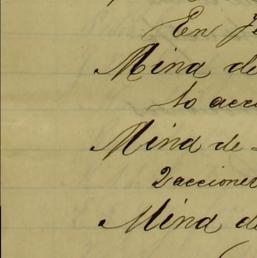 En
Mina de
10 acci
Mina de
2 acciones
Mina de